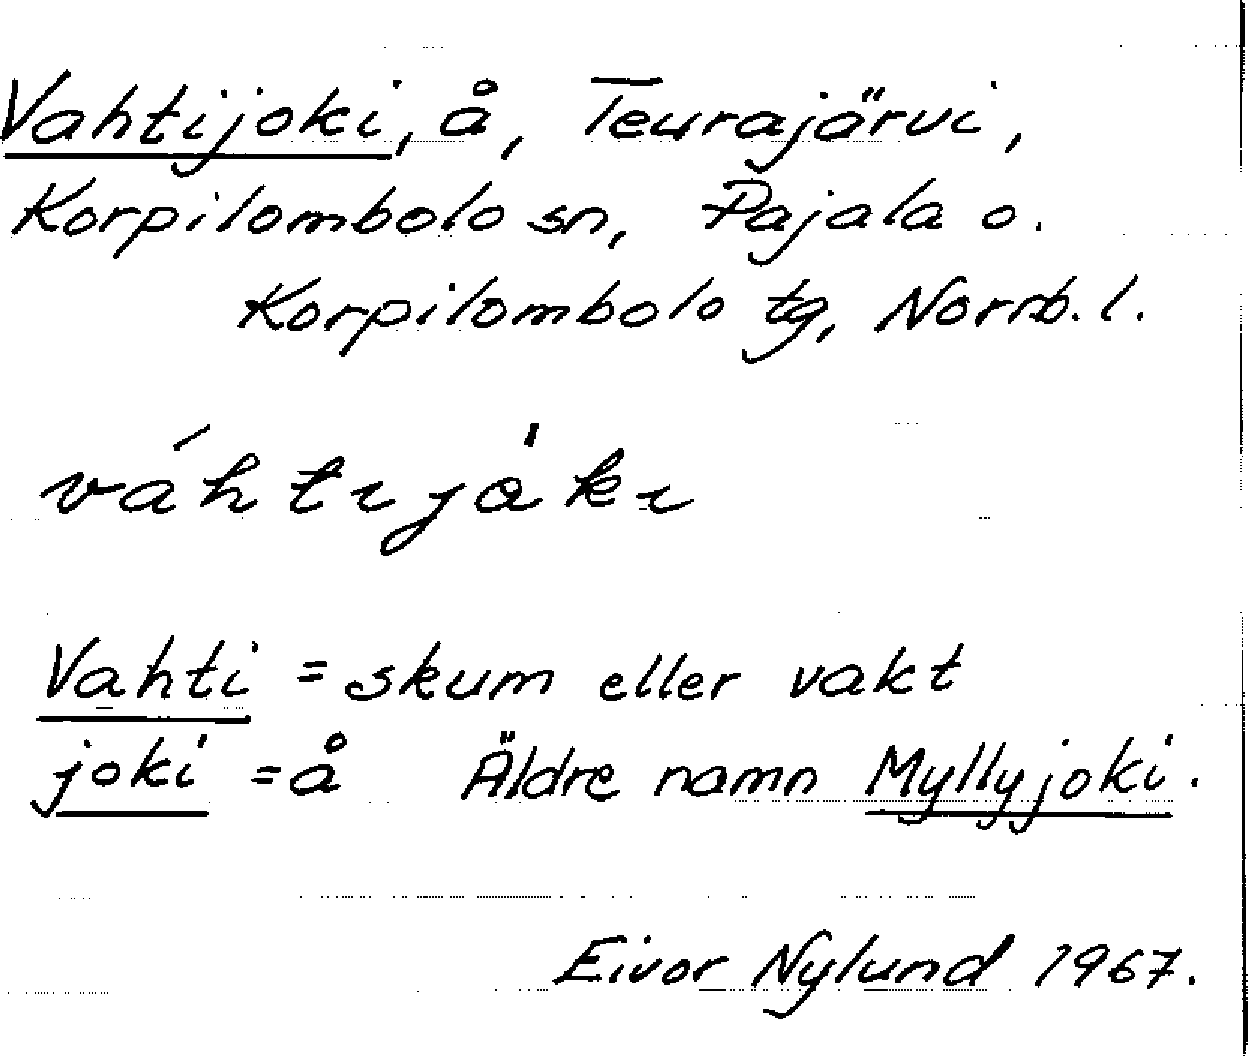 Vahtijoki, å, Teurajärvi,
Korpilombolo sn, Pajala o.
Korpilombolo tg, Norrb. l.
váhtɩjȧkɩ
Vahti = skum eller vakt
joki = å Äldre namn Myllyjoki.
Eivor Nylund 1967.